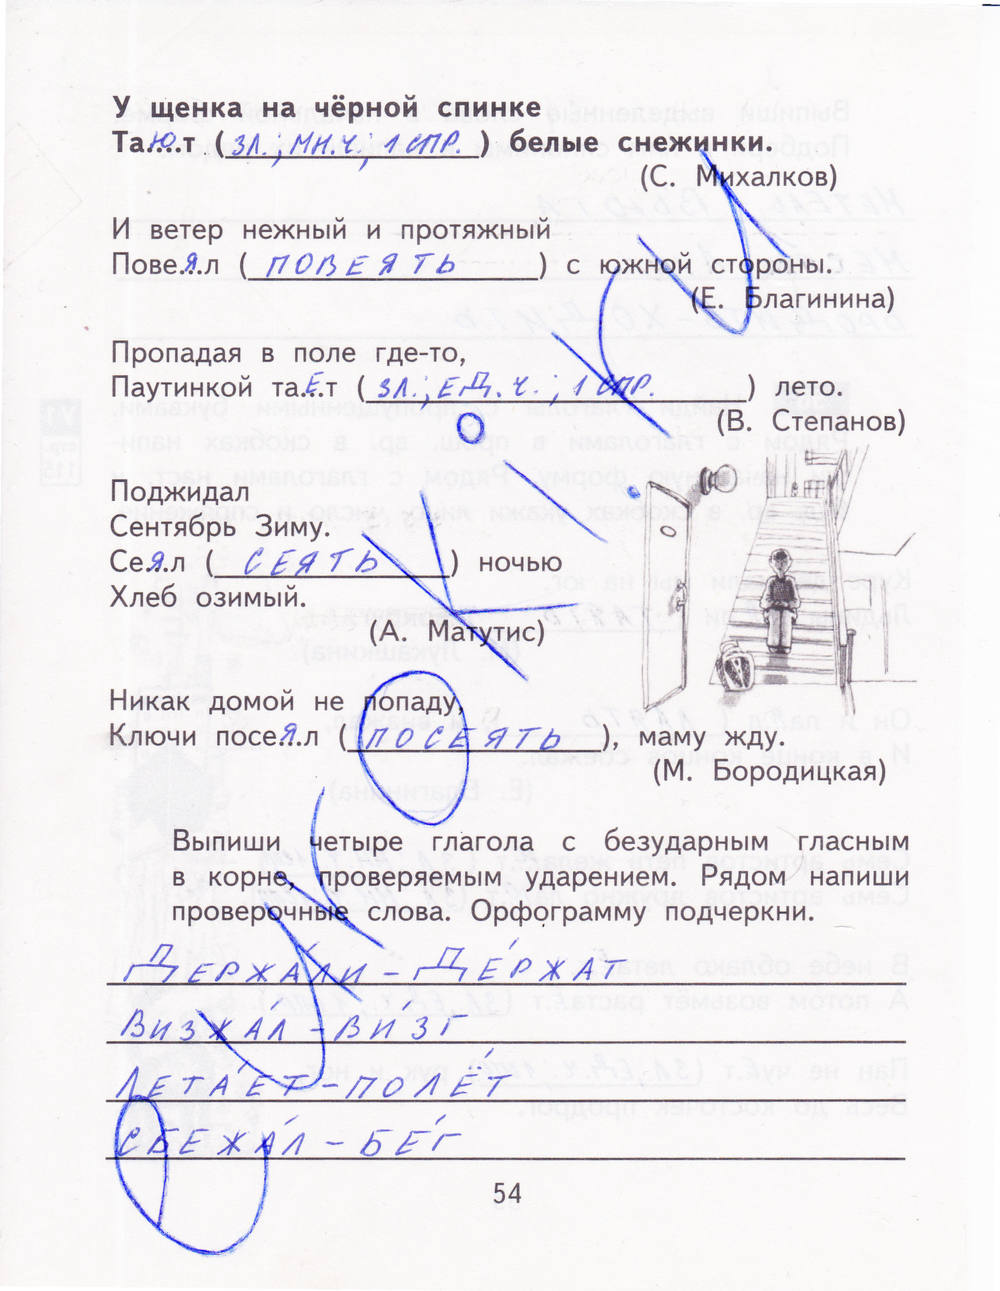 У щенка на чёрной спинке
Та.Ю.т (3Л.; МН.Ч.; 1 СПР.) белые снежинки.
(С. Михалков)
И ветер нежный и протяжный
Пове.Я.л (ПОВЕЯТЬ) с южной стороны.
(Е. Благинина)
Пропадая в поле где-то,
Паутинкой та.Е.т (3Л.; ЕД.Ч.; 1 СПР.) лето.
(В. Степанов)
Поджидал
Сентябрь Зиму.
Се.Я.л (СЕЯТЬ) ночью
Хлеб озимый.
(А. Матутис)
Никак домой не попаду,
Ключи посе.Я.л (ПОСЕЯТЬ), маму жду.
(М. Бородицкая)
Выпиши четыре глагола с безударным гласным
в корне, проверяемым ударением. Рядом напиши
проверочные слова. Орфограмму подчеркни.
ДЕРЖА́ЛИ – ДЕ́РЖАТ
ВИЗЖА́Л – ВИ́ЗГ
ЛЕТА́ЕТ – ПОЛЁТ
СБЕЖА́Л – БЕ́Г
54